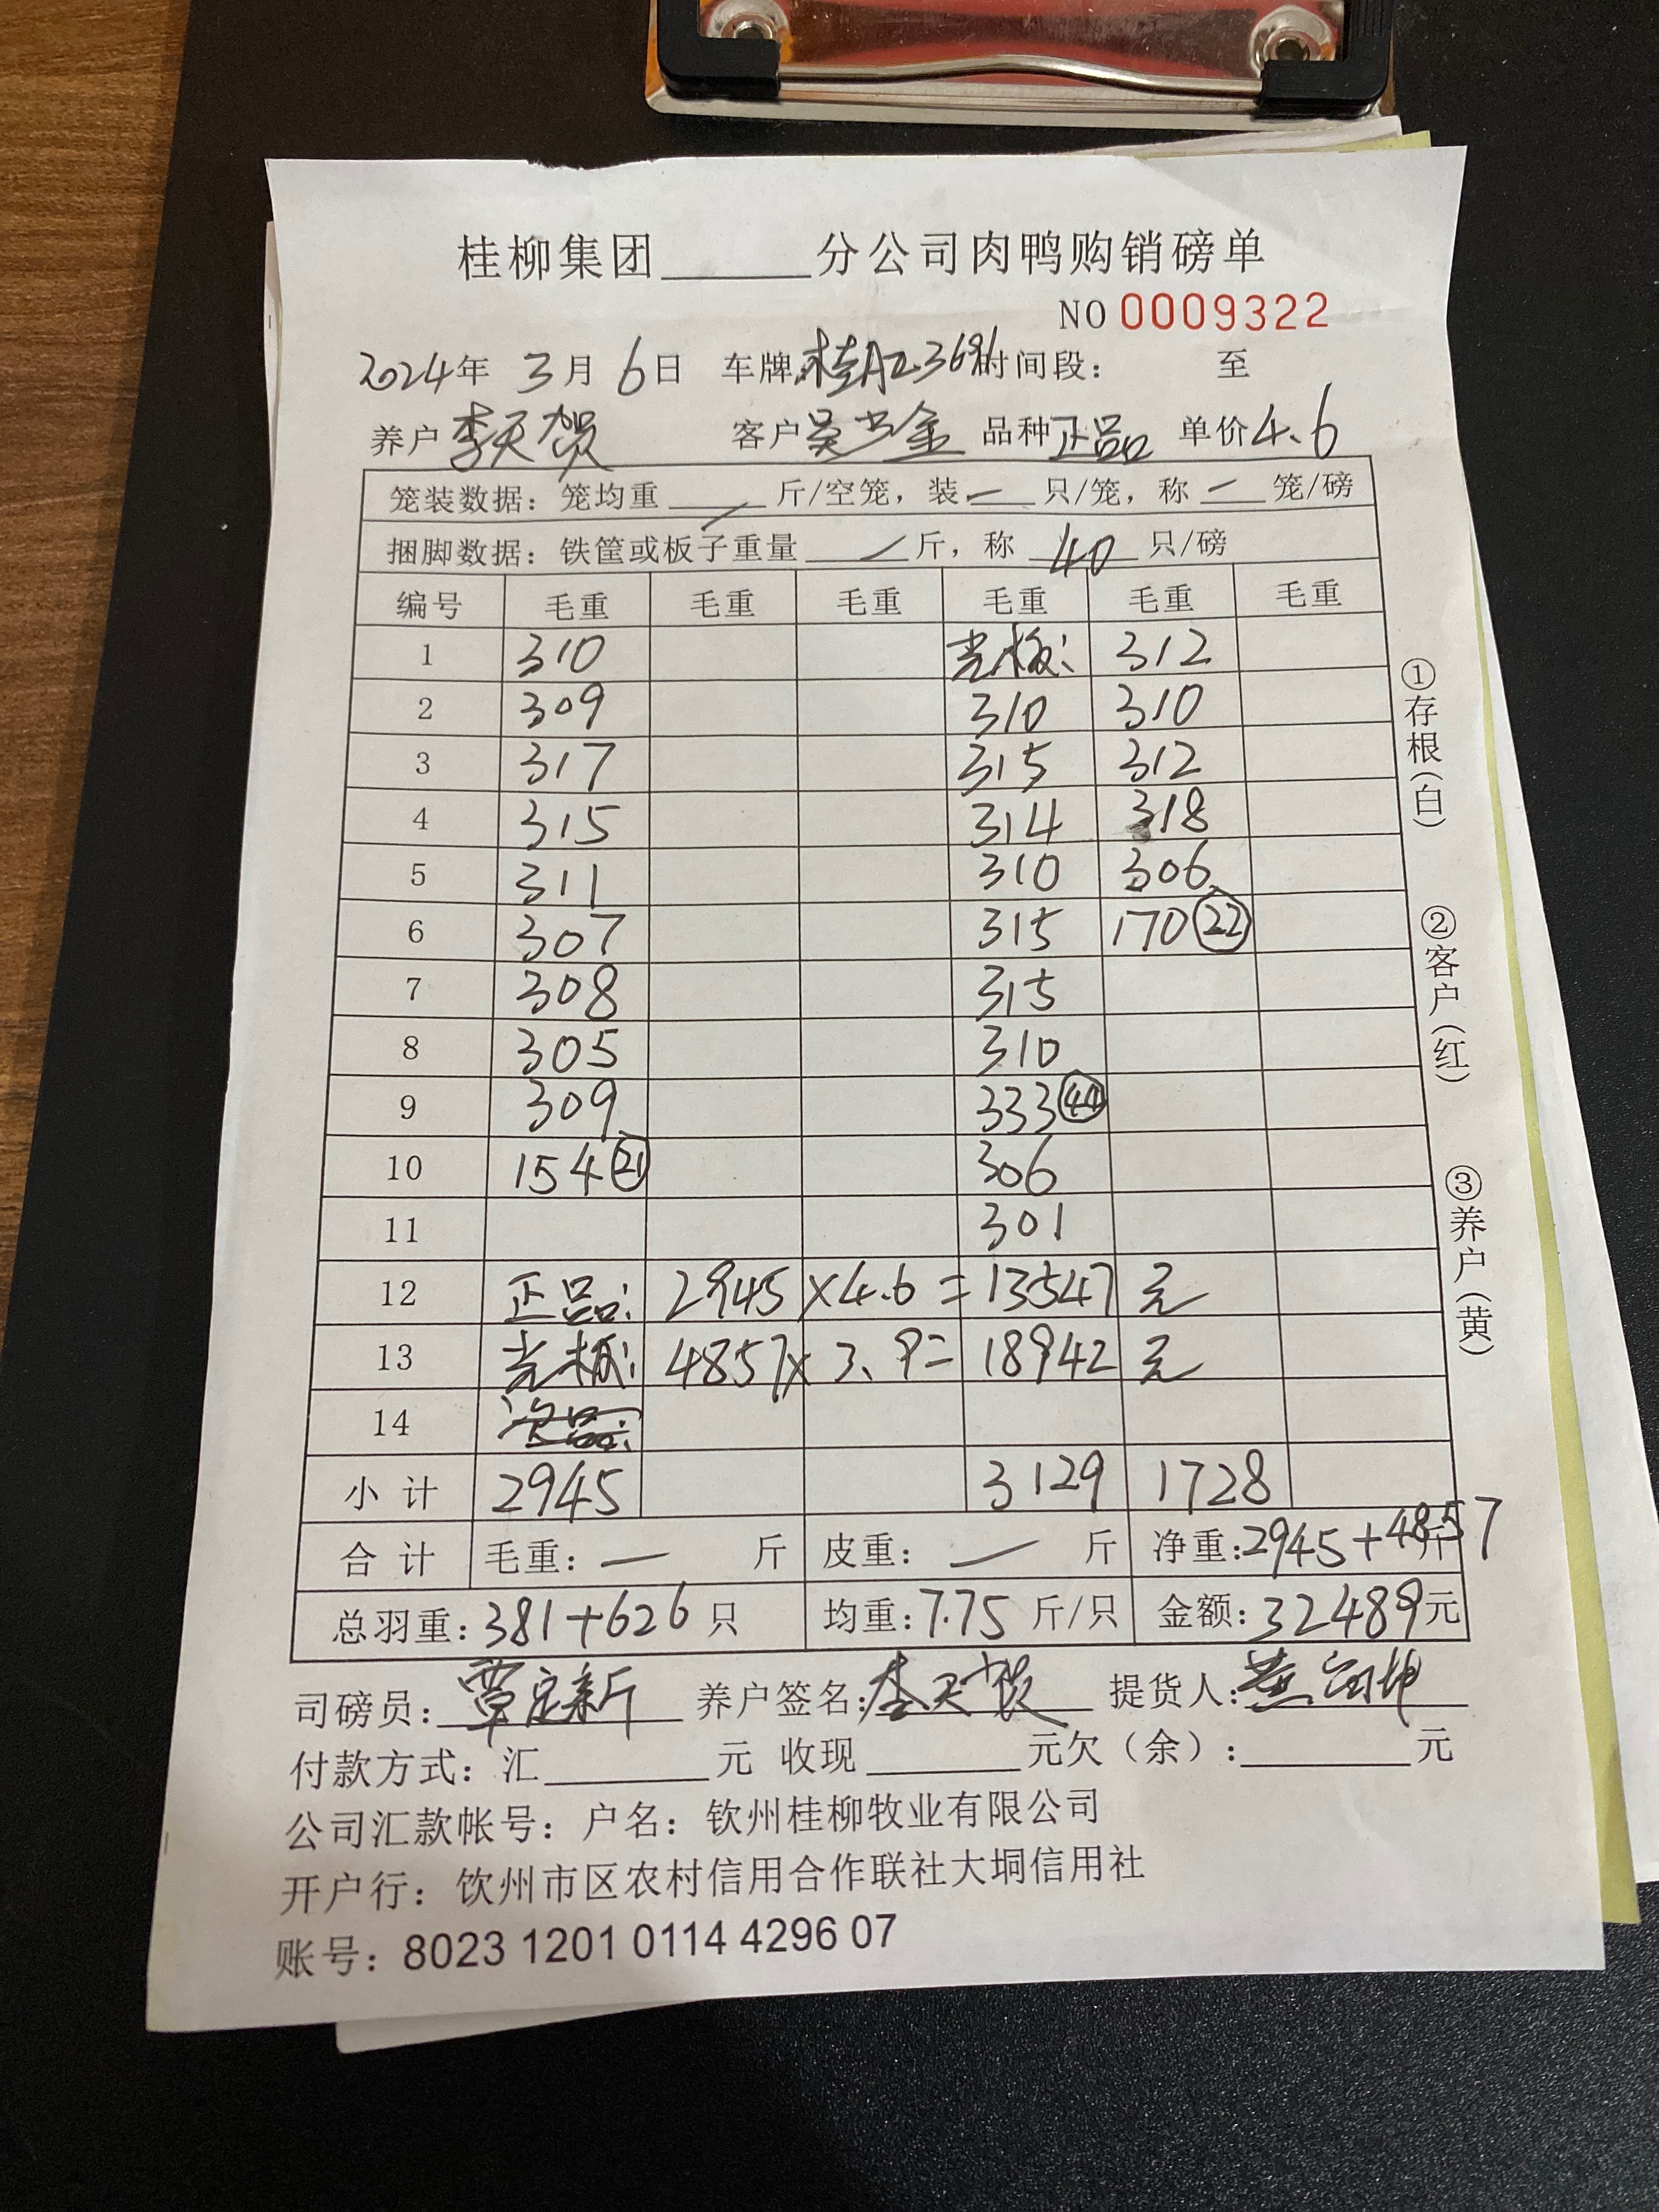 桂柳集团______分公司肉鸭购销磅单
NO 0009322
2024年 3月 6日 车牌 桂A 时间段： 至
养户 李天贺 客户 吴少金 品种 正品 单价 4.6
笼装数据：笼均重 — 斤/空笼，装 — 只/笼，称 — 笼/磅
捆脚数据：铁筐或板子重量 — 斤，称 40 只/磅
编号 毛重 毛重 毛重 毛重 毛重 毛重
1 310 光板： 312
2 309 310 310
3 317 315 312
4 315 314 318
5 311 310 306
6 307 315 170 22
7 308 315
8 305 310
9 309 333 44
10 154 21 306
11 301
12 正品： 2945 × 4.6 = 13547 元
13 光板： 4857 × 3.9 = 18942 元
14
小计 2945 3129 1728
合计 毛重：— 斤 皮重：— 斤 净重：2945+4857 斤
总羽重：381+626 只 均重：7.75 斤/只 金额：32489元
司磅员：覃定新 养户签名：李天贺 提货人：黄
付款方式：汇______元 收现______元欠（余）：______元
公司汇款帐号：户名：钦州桂柳牧业有限公司
开户行：饮州市区农村信用合作联社大垌信用社
账号：8023 1201 0114 4296 07
①存根（白）
②客户（红）
③养户（黄）